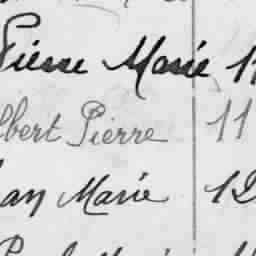 Pierre Marie 11
Albert Pierre 11
Jean Marie 12